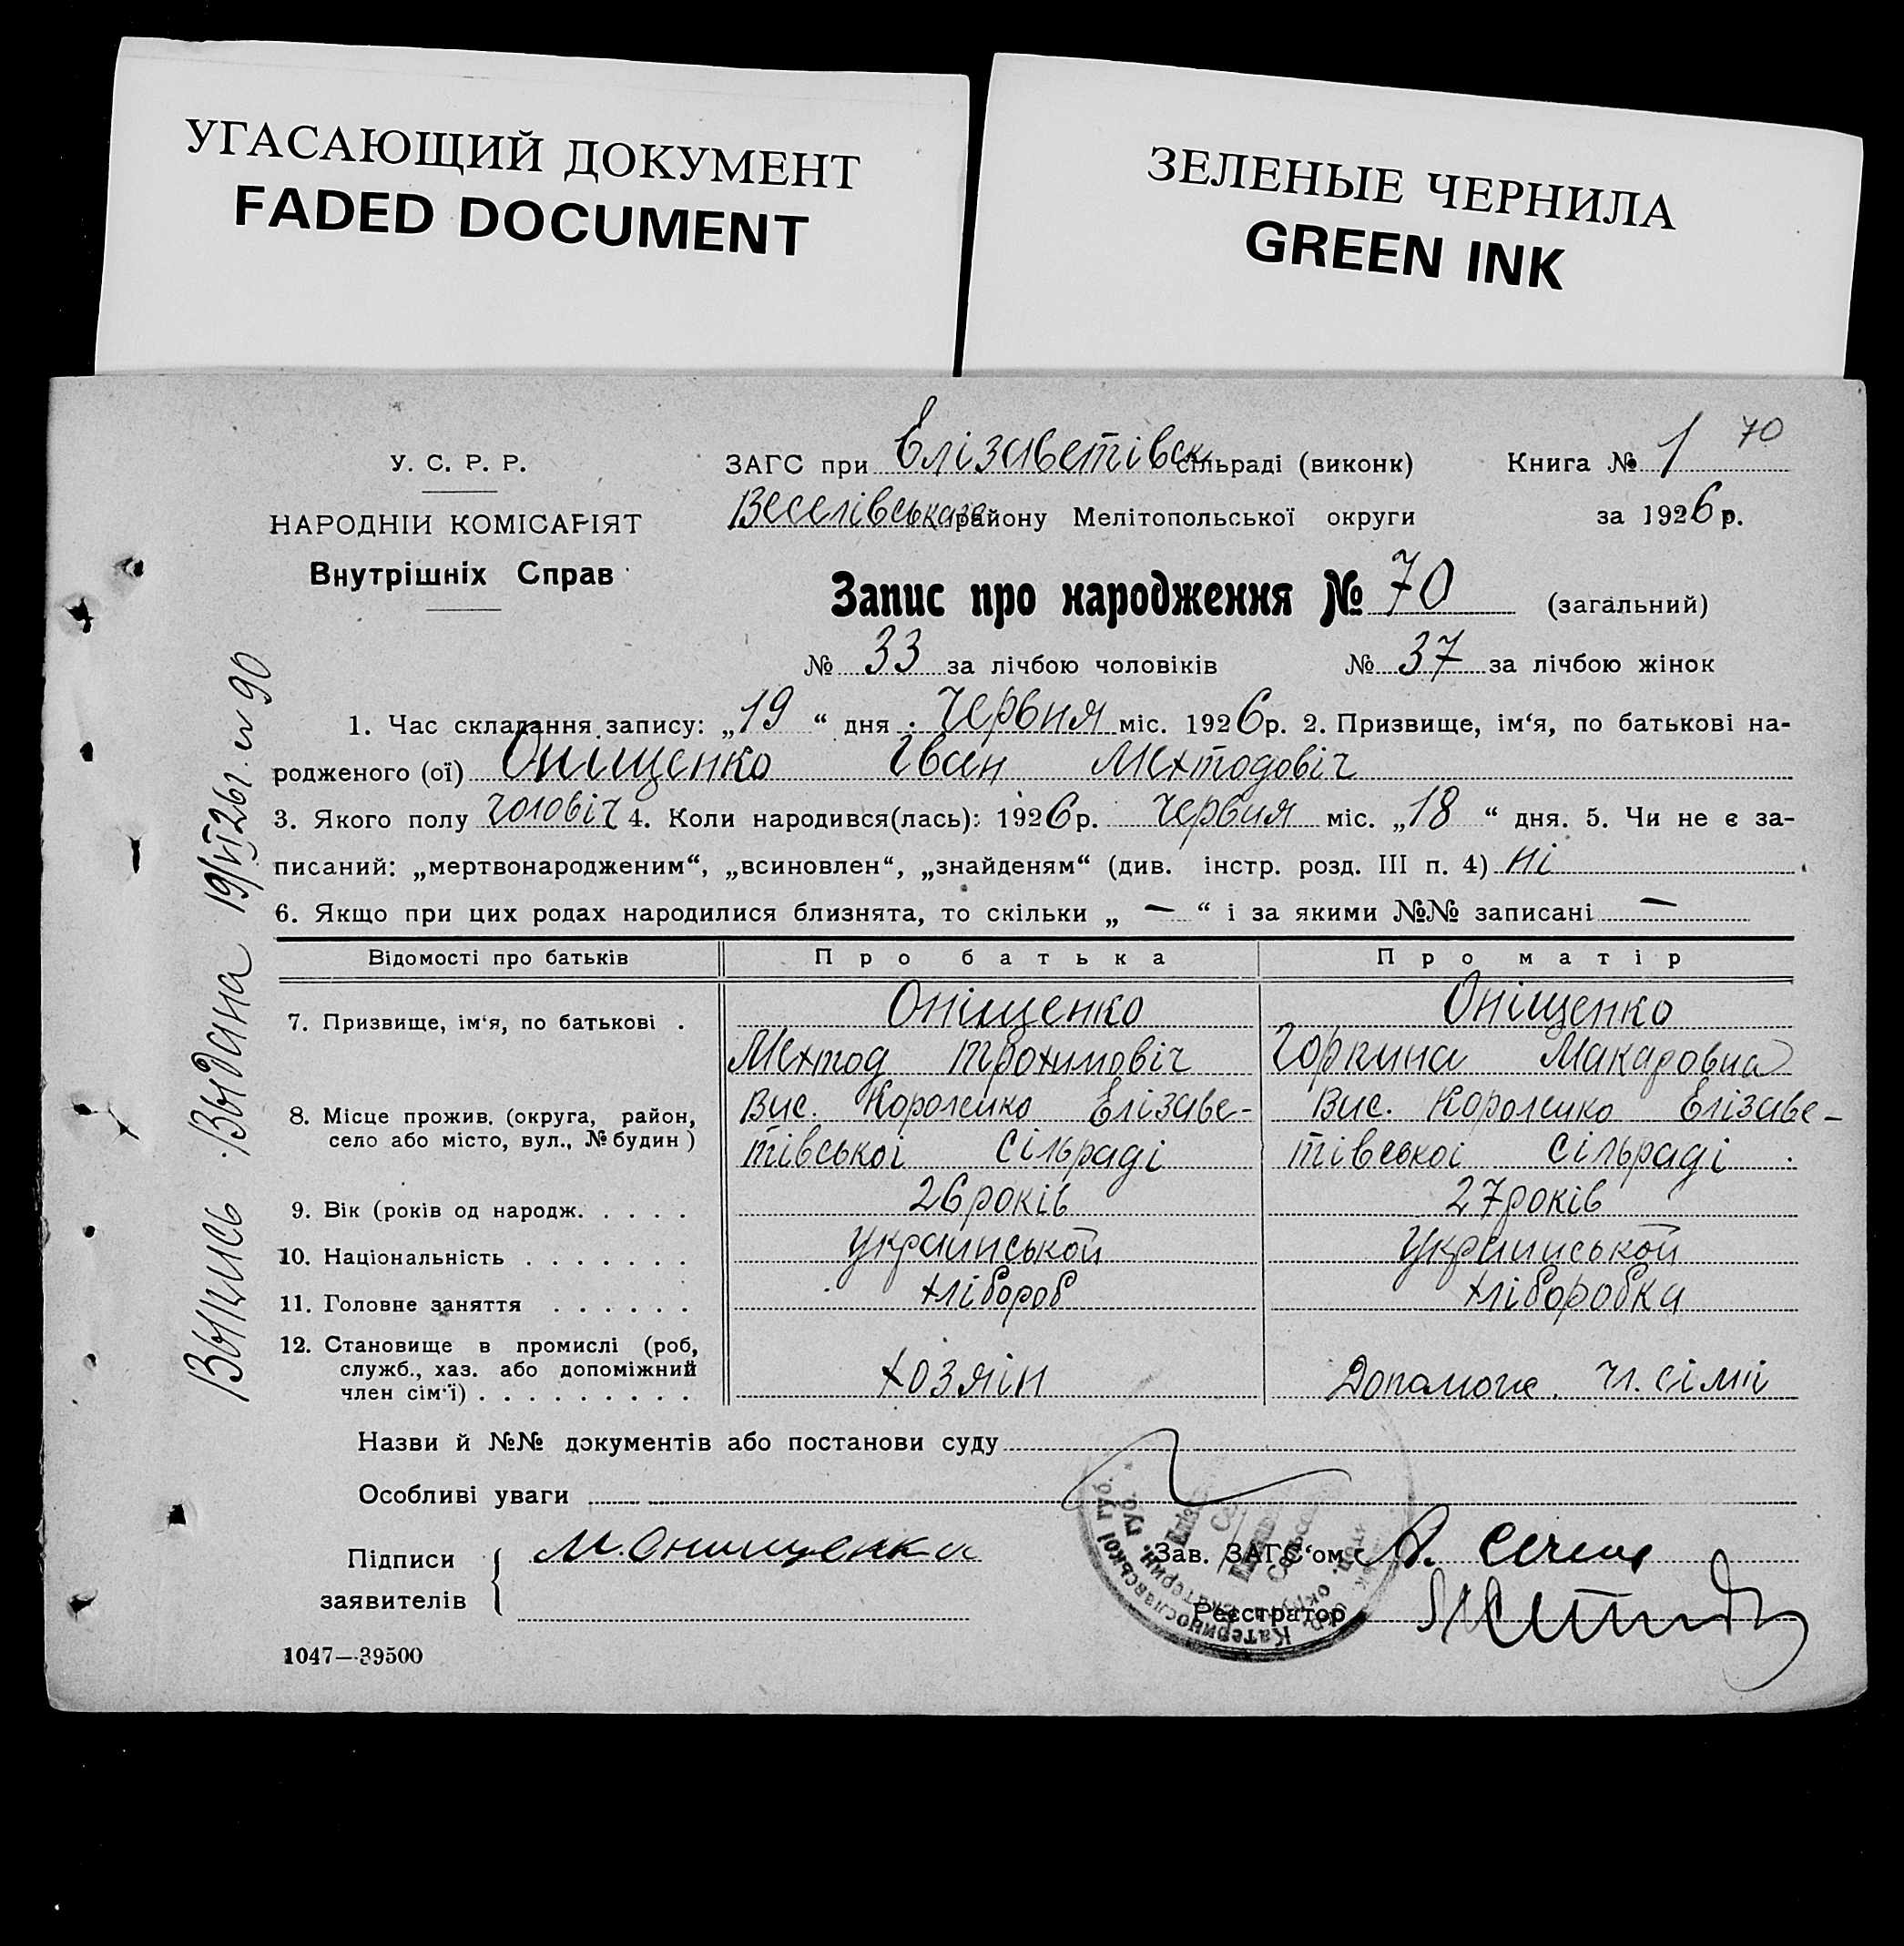 УГАСАЮЩИЙ ДОКУМЕНТ
FADED DOCUMENT
ЗЕЛЕНЫЕ ЧЕРНИЛА
GREEN INK
70
У. С. Р. Р.
НАРОДНІЙ КОМІСАРІЯТ
Внутрішніх Справ
ЗАГС при Єлізаветівск сільраді (виконк) Книга № 1
Веселівського району Мелітопольської округи за 1926 р.
Запис про народження № 70 (загальний)
№ 33 за лічбою чоловіків № 37 за лічбою жінок
1. Час складання запису: „19“ дня Червня міс. 1926 р. 2. Призвище, ім‘я, по батькові на-
родженого (ої) Оніщенко Іван Мехтодовіч
3. Якого полу чоловіч 4. Коли народився(лась): 1926 р. червня міс. „18“ дня. 5. Чи не є за-
писаний: „мертвонародженим“, „всиновлен“, „знайденям“ (див. інстр. розд. III п. 4) ні
6. Якщо при цих родах народилися близнята, то скільки „ — “ і за якими №№ записані —
Відомості про батьків Про батька Про матір
7. Призвище, ім‘я, по батькові . Оніщенко Оніщенко
Мехтод Трохимовіч Горпина Макаровна
8. Місце прожив. (округа, район, Вис. Короленко Елізаве- Вис. Короленко Елізаве-
село або місто, вул., № будин) тівської сільраді тівської сільраді
9. Вік (років од народж. . . . . 26 років 27 років
10. Національність . . . . . . . украинськой Украинськой
11. Головне заняття . . . . . . хлібороб хліборобка
12. Становище в промислі (роб,
служб., хаз. або допоміжний
член сім‘ї) . . . . . . . . . хозяін Допомож. чл. сімії
Назви й №№ документів або постанови суду
Особливі уваги
Підписи
заявителів
М. Онищенка
Зав. ЗАГС‘ом А.
Реєстратор
1047—39500
Выпись Выдана 19/VI 26 г. № 90